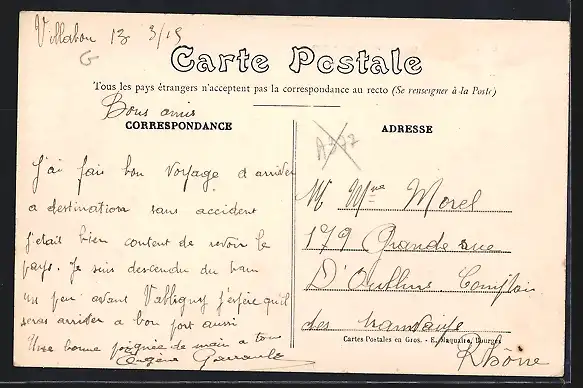 Villabon 13 3/15
G
Carte Postale
Tous les pays étrangers n'acceptent pas la correspondance au recto (Se renseigner à la Poste)
Bons amis
CORRESPONDANCE
J'ai fais bon voyage et arriver
a destination sans accident
j'étais bien content de revoir le
pays. Je suis descendu du train
un peu avant j'espère qu'il
seras arriver a bon port aussi
Une bonne poignée de main a tous
Eugène
ADRESSE
A372
Mr Mme Morel
179 Grande rue
D'Oullins
des
Cartes Postales en Gros. - E. Maquaire, Bourges
Rhône